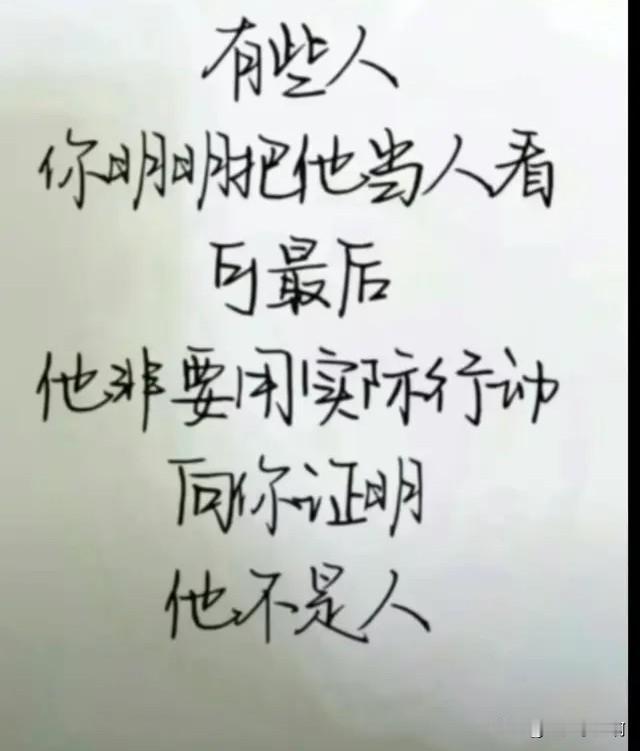 有些人
你明明把他当人看
可最后
他非要用实际行动
向你证明
他不是人